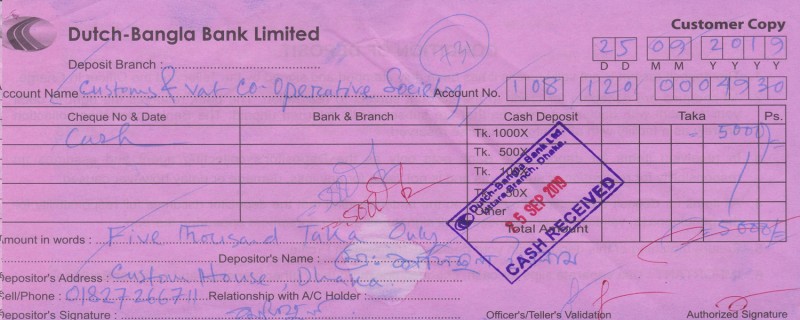 Dutch-Bangla Bank Limited
Customer Copy
730
25 09 2019
D D M M Y Y Y Y
Deposit Branch :
Account Name Customs & vat Co-Operative Society Account No. 108 120 0004930
Cheque No & Date Bank & Branch Cash Deposit Taka Ps.
Cash Tk. 1000X = 5000/-
Tk. 500X
Tk.
Tk. 50X
Other
Total Amount = 5000/-
5000/-
5000/-
Dutch-Bangla Bank Ltd.
Uttara Branch, Dhaka.
25 SEP 2019
CASH RECEIVED
Amount in words : Five Thousand Taka Only
Depositor's Name : মোঃ
Depositor's Address : Custom House, Dhaka
Cell/Phone : 01827266711 Relationship with A/C Holder :
Depositor's Signature : Officer's/Teller's Validation Authorized Signature